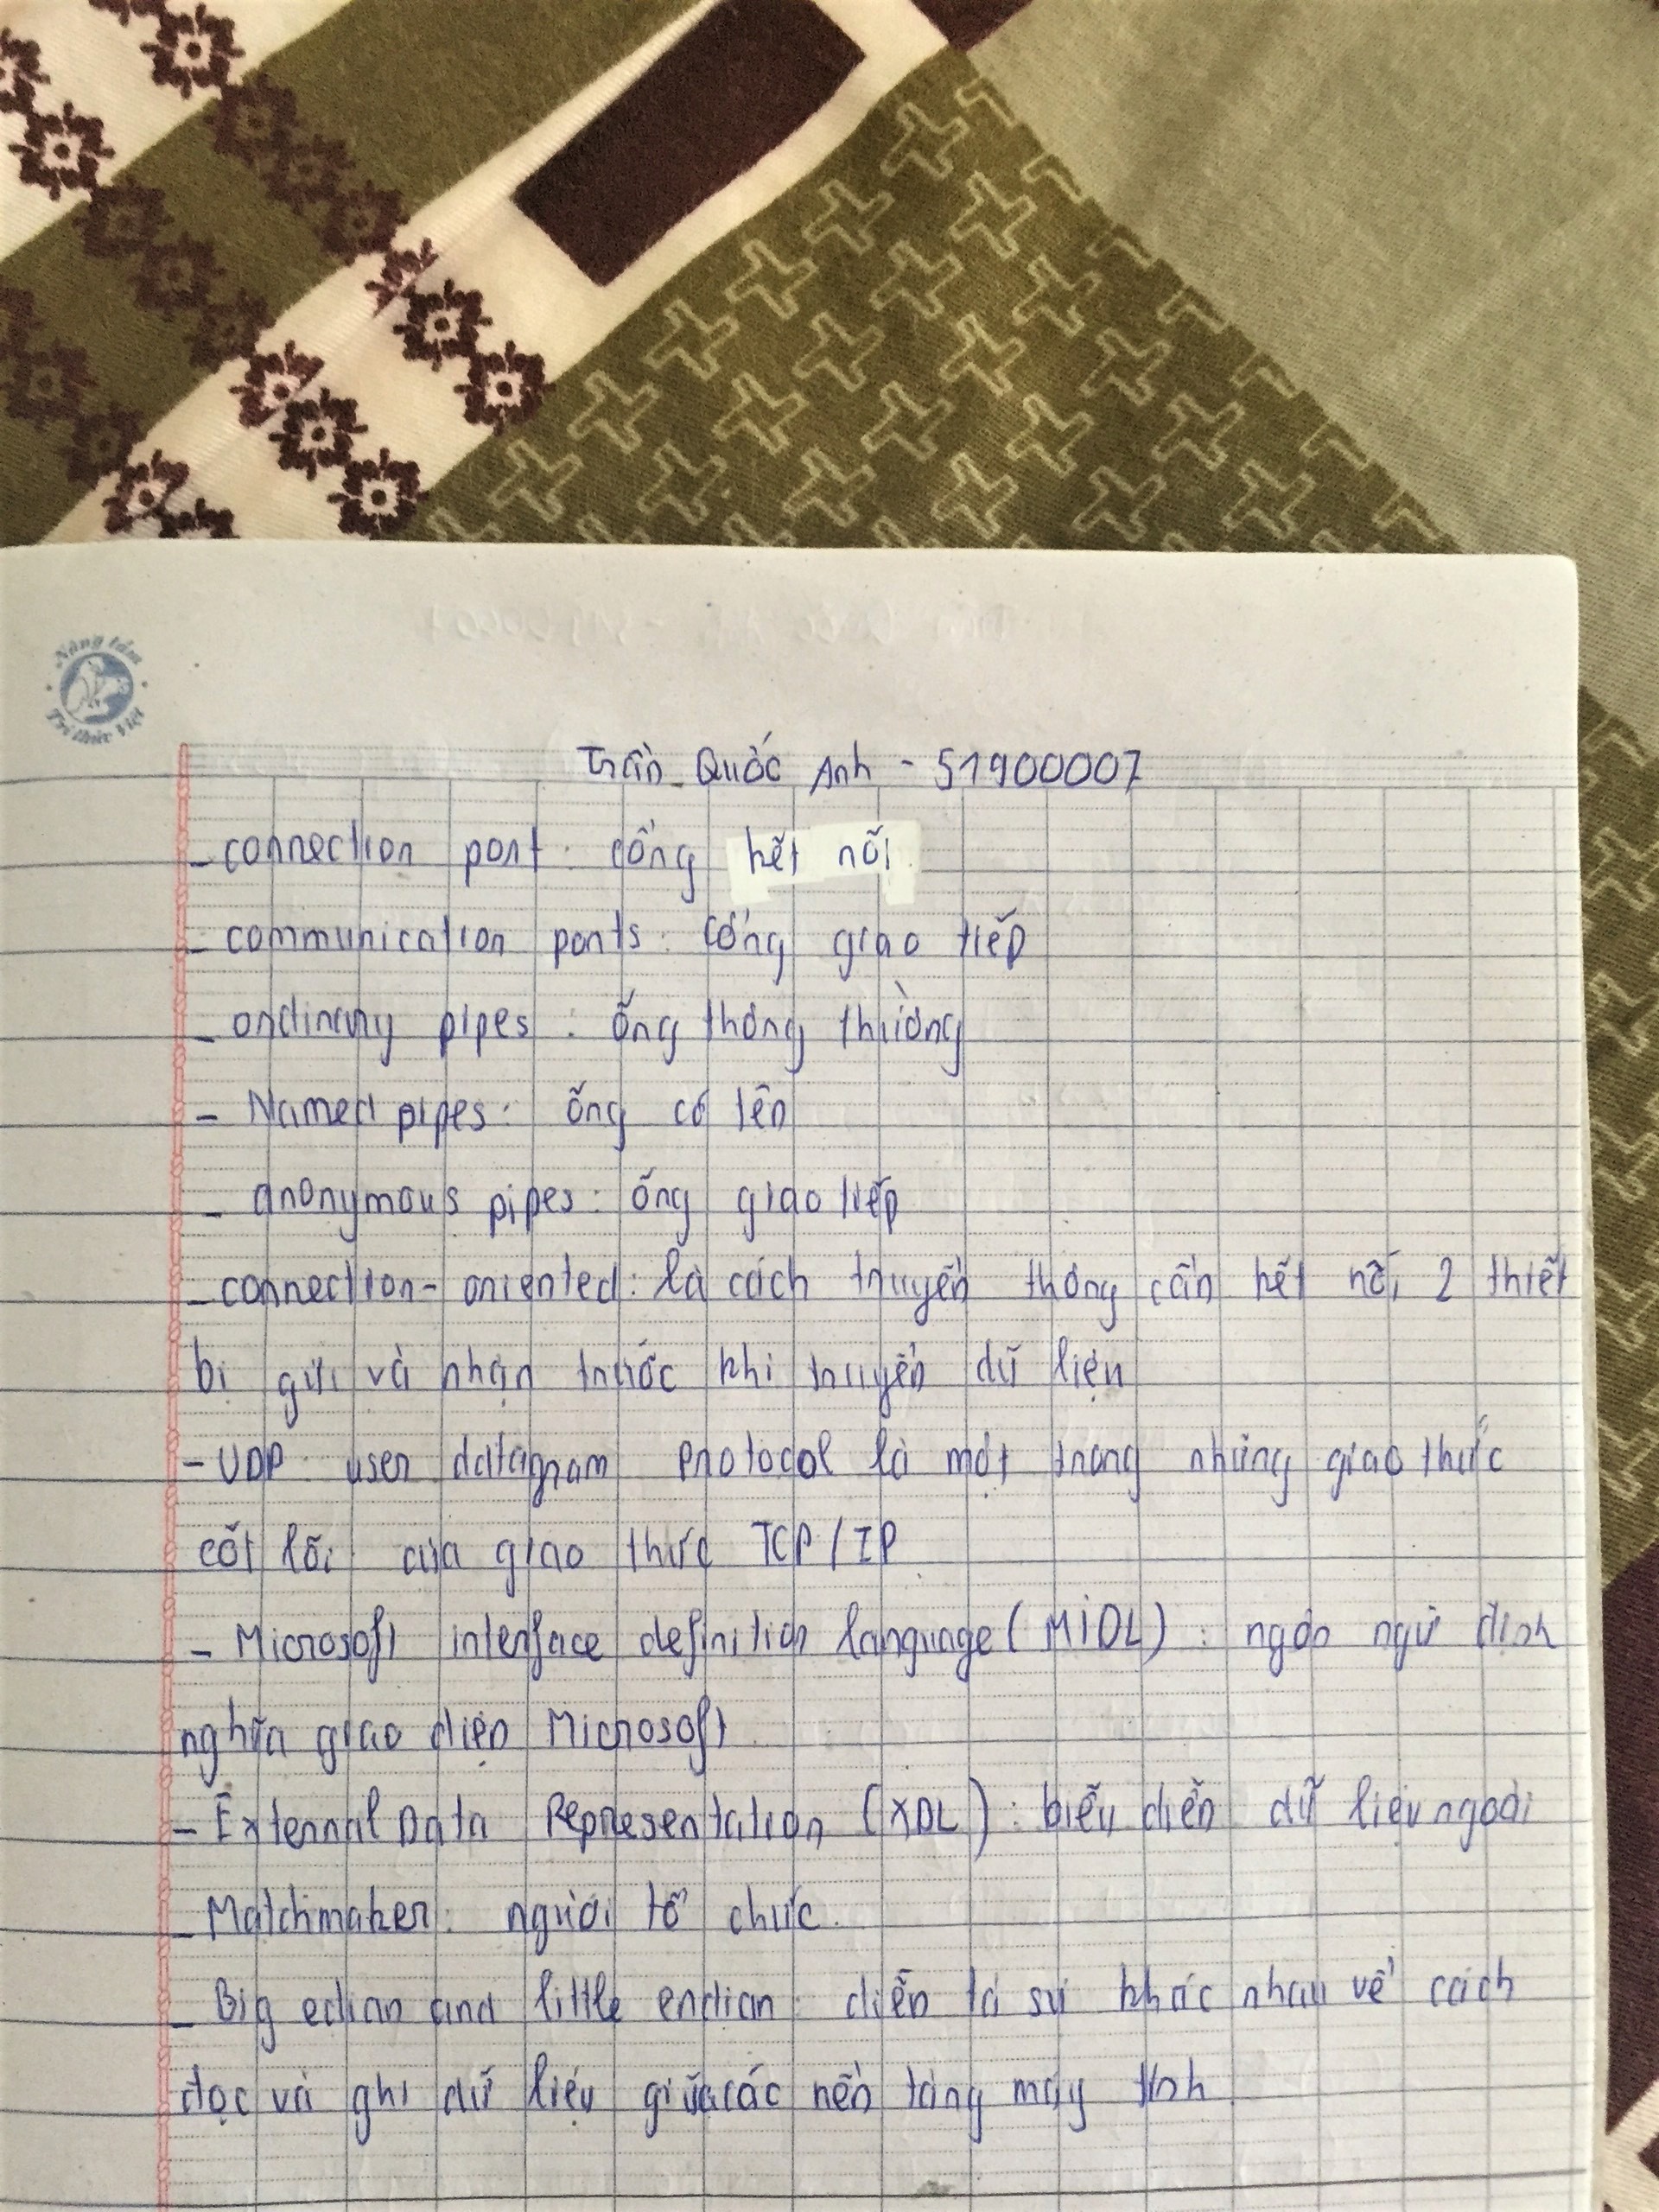 Nâng tầm
Tri thức Việt
Trần Quốc Anh - 51900007
- connection port: cổng kết nối
- communication ports: cổng giao tiếp
- ordinary pipes: ống thông thường
- Named pipes: ống có tên
- anonymous pipes: ống giao tiếp
- connection-oriented: là cách truyền thông cần kết nối 2 thiết
bị gửi và nhận trước khi truyền dữ liệu
- UDP: user datagram protocol là một trong những giao thức
cốt lõi của giao thức TCP/IP
- Microsoft interface definition language (MIDL): ngôn ngữ định
nghĩa giao diện Microsoft
- External Data Representation (XDL): biểu diễn dữ liệu ngoài
- Matchmaker: người tổ chức.
- Big edian and little endian: diễn tả sự khác nhau về cách
đọc và ghi dữ liệu giữa các nền tảng máy tính